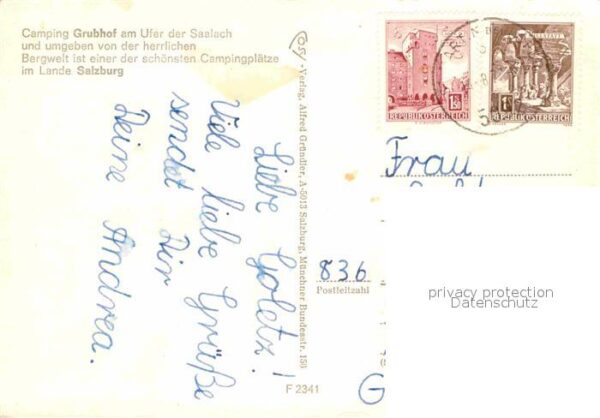 Camping Grubhof am Ufer der Saalach
und umgeben von der herrlichen
Bergwelt ist einer der schönsten Campingplätze
im Lande Salzburg
Liebe Goletz!
Viele liebe Grüße
sendet Dir
Deine Andrea.
Verlag, Alfred Gründler, A-5013 Salzburg, Münchner Bundesstr. 150
REPUBLIK ÖSTERREICH
REPUBLIK ÖSTERREICH
Frau
836
Postleitzahl
privacy protection
Datenschutz
F 2341